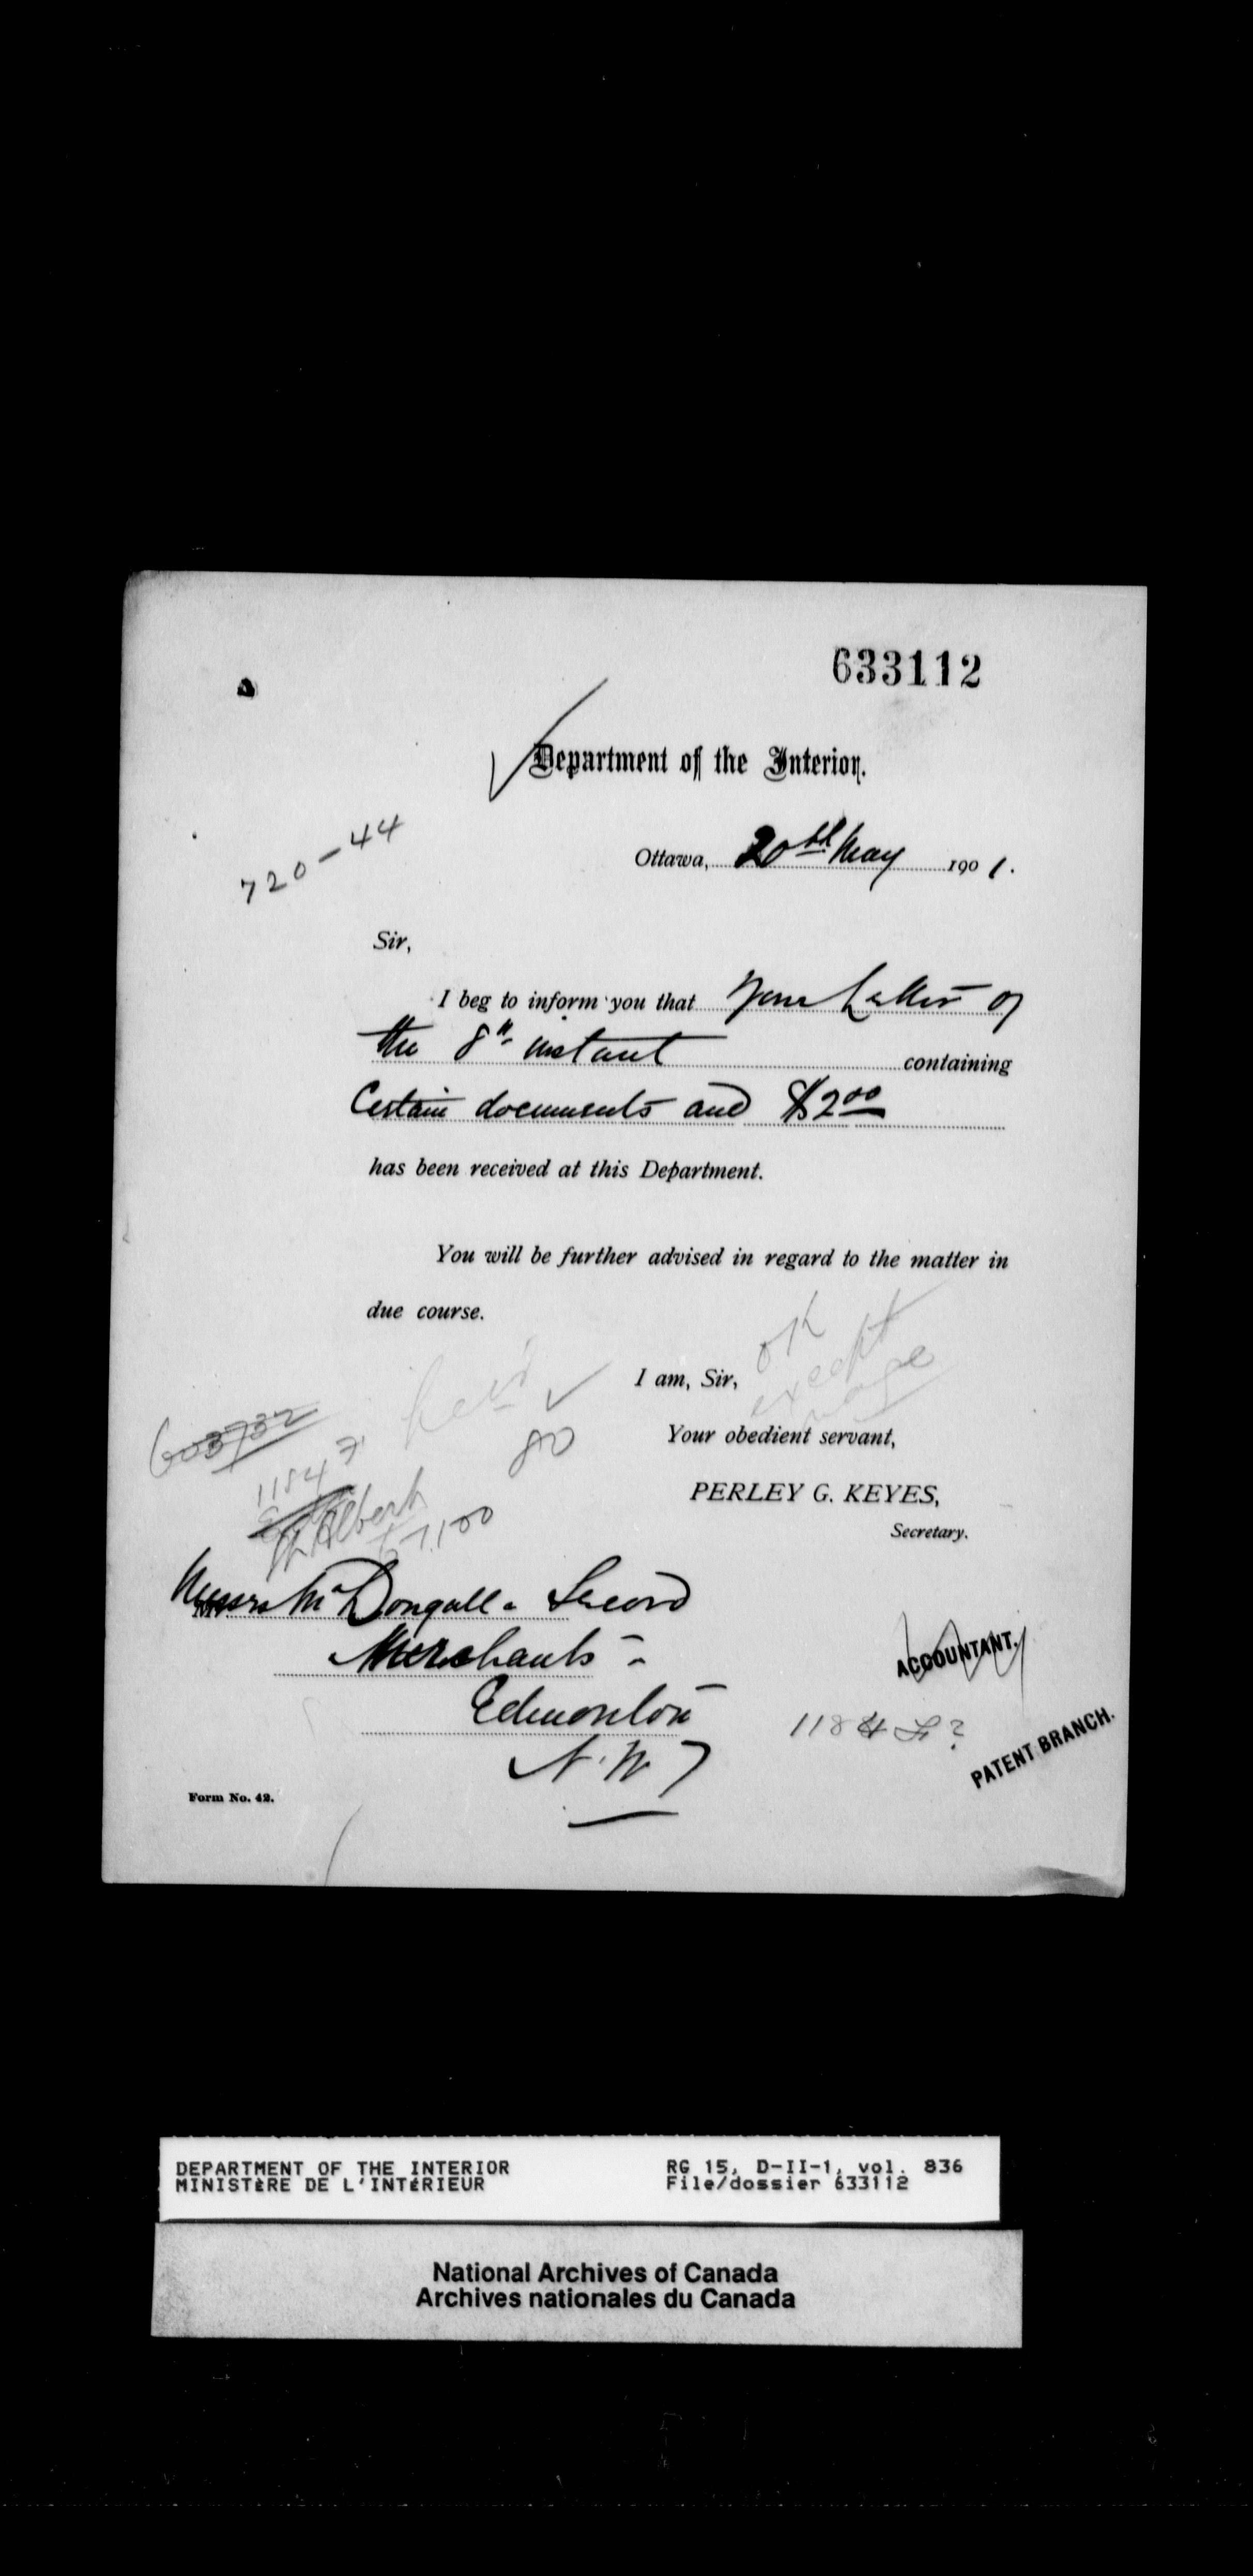 633112
Department of the Interior.
720-44
Ottawa, 20th May 1901.
Sir,
I beg to inform you that your letter of
the 8th instant containing
Certain documents and $2.00
has been received at this Department.
You will be further advised in regard to the matter in
due course.
OK
except
I am, Sir,
603732
80
Your obedient servant,
1184
PERLEY G. KEYES,
Albert
Secretary.
Messrs McDougall & Secord
Merchants
ACCOUNTANT.
Edmonton
1184
PATENT BRANCH.
N.W.T
Form No. 42.
DEPARTMENT OF THE INTERIOR RG 15, D-II-1, vol. 836
MINISTÈRE DE L'INTÉRIEUR File/dossier 633112
National Archives of Canada
Archives nationales du Canada